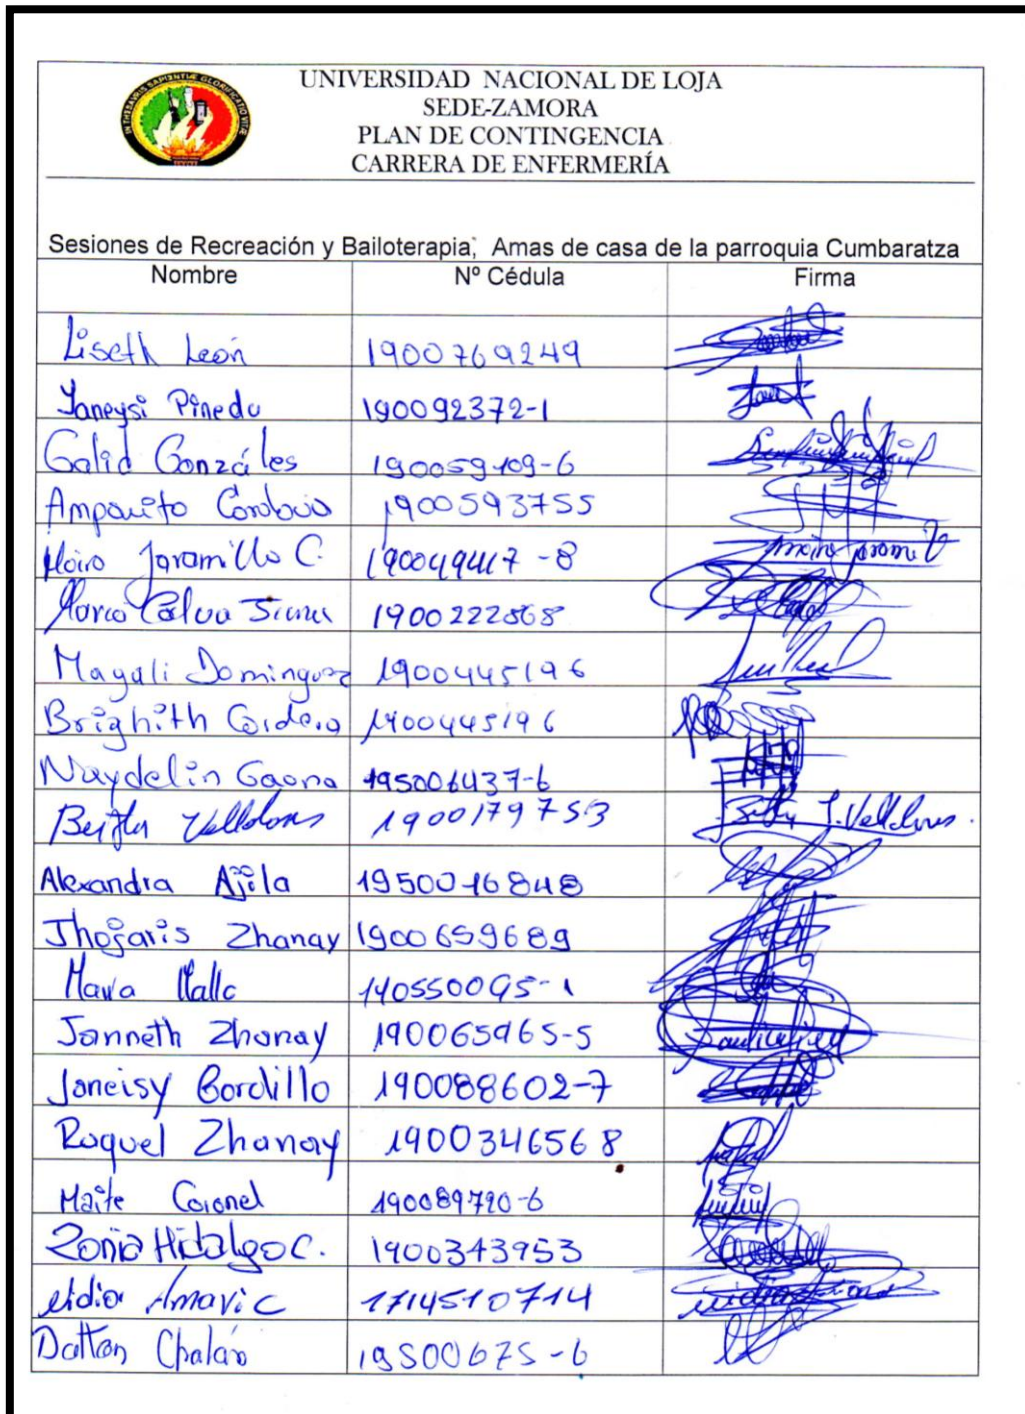 UNIVERSIDAD NACIONAL DE LOJA
SEDE-ZAMORA
PLAN DE CONTINGENCIA
CARRERA DE ENFERMERÍA
Sesiones de Recreación y Bailoterapia, Amas de casa de la parroquia Cumbaratza
Nombre Nº Cédula Firma
Liseth León 1900769249
Yaneysi Pineda 190092372-1
Galid Gonzáles 190059109-6
Amparito Cordova 1900593755
Jaramillo C.
Calva 1900222568
Magali Dominguez 1900445196
Brighith Cordero 1900445196
Naydelin Gaona 195006437-6
1900179753
Alexandra Ajila 1950016848
Jhojaris Zhanay 1900659689
Maria 140550095-1
Janneth Zhanay 190065965-5
Janeisy Gordillo 190088602-7
Raquel Zhanay 1900346568
Maite Coronel 190089790-6
Zonia Hidalgo C. 1900343953
1714510714
Dalton Chalán 19500675-6